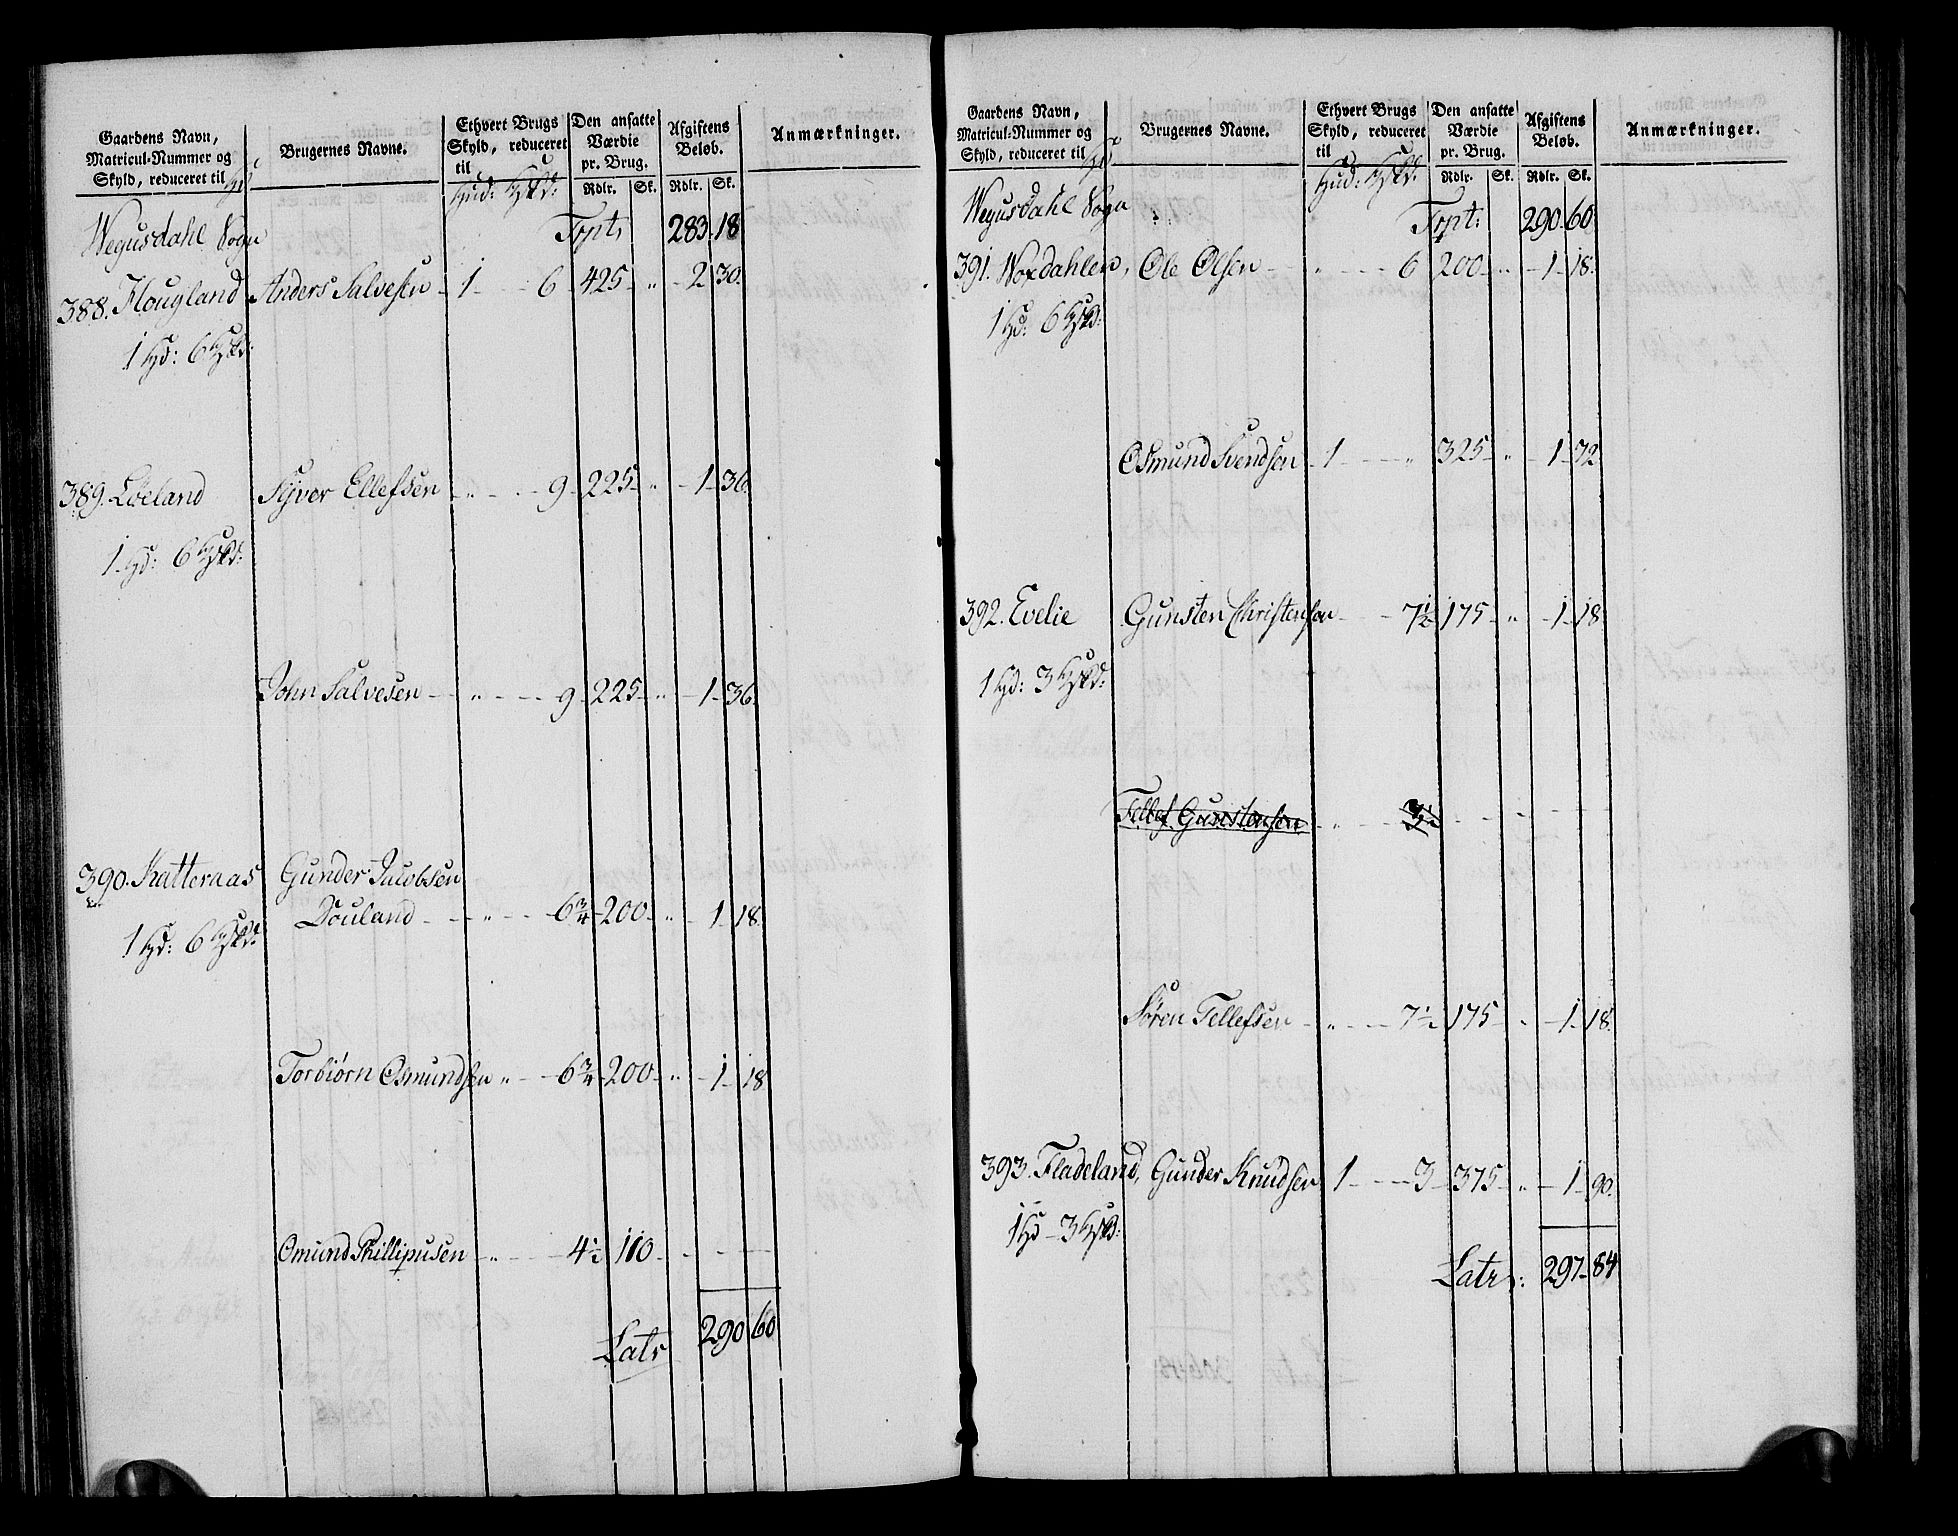 Gaardens Navn, Matricul-Nummer og Skyld, reduceret til Hd: | Brugernes Navne. | Ethvert Brugs Skyld, reduceret til Hud: Hskd: | Den ansatte Værdie pr. Brug. Rdlr. Sk. | Afgiftens Beløb. Rdlr. Sk. | Anmærkninger.
Wegusdahl Sogn Trpt: 283 18
388. Hougland Anders Salvesen 1 6 425 " 2 30.
1 Hd: 6 Hskd:
389. Løeland Siver Ellefsen " 9 225 " 1 36.
1 Hd: 6 Hskd:
John Salvesen " 9 225 " 1 36.
390. Katteraas Gunder Jacobsen
Douland " 6¾ 200 " 1 18.
1 Hd: 6 Hskd:
Torbiørn Osmundsen " 6¾ 200 " 1 18
Omund Phillipusen " 4½ 110
Latr 290 60
Gaardens Navn, Matricul-Nummer og Skyld, reduceret til Hd: | Brugernes Navne. | Ethvert Brugs Skyld, reduceret til Hud: Hskd: | Den ansatte Værdie pr. Brug. Rdlr. Sk. | Afgiftens Beløb. Rdlr. Sk. | Anmærkninger.
Wegusdahl Sogn Trpt: 290 60
391. Woxdahlen, Ole Olsen " 6 200 " 1 18.
1 Hd: 6 Hskd:
Osmund Svendsen 1 " 325 " 1 72
392. Evelie Gunsten Christensen 7½ 175 " 1 18
1 Hd: 3 Hskd:
Tellef Gunstensen " 3½
Søren Tellefsen " 7½ 175 " 1 18.
393. Fladeland, Gunder Knudsen 1 3 375 " 1 90.
1 Hd 3 Hskd:
Latr: 297 84